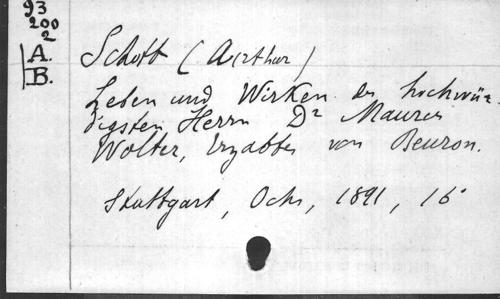 93
200
2
A.
B.
Schott (Arthur)
Leben und Wirken des hochwür=
digsten Herrn Dr Maurus
Wolter, Erzabtes von Beuron.
Stuttgart, Ochs, 1891, 16°